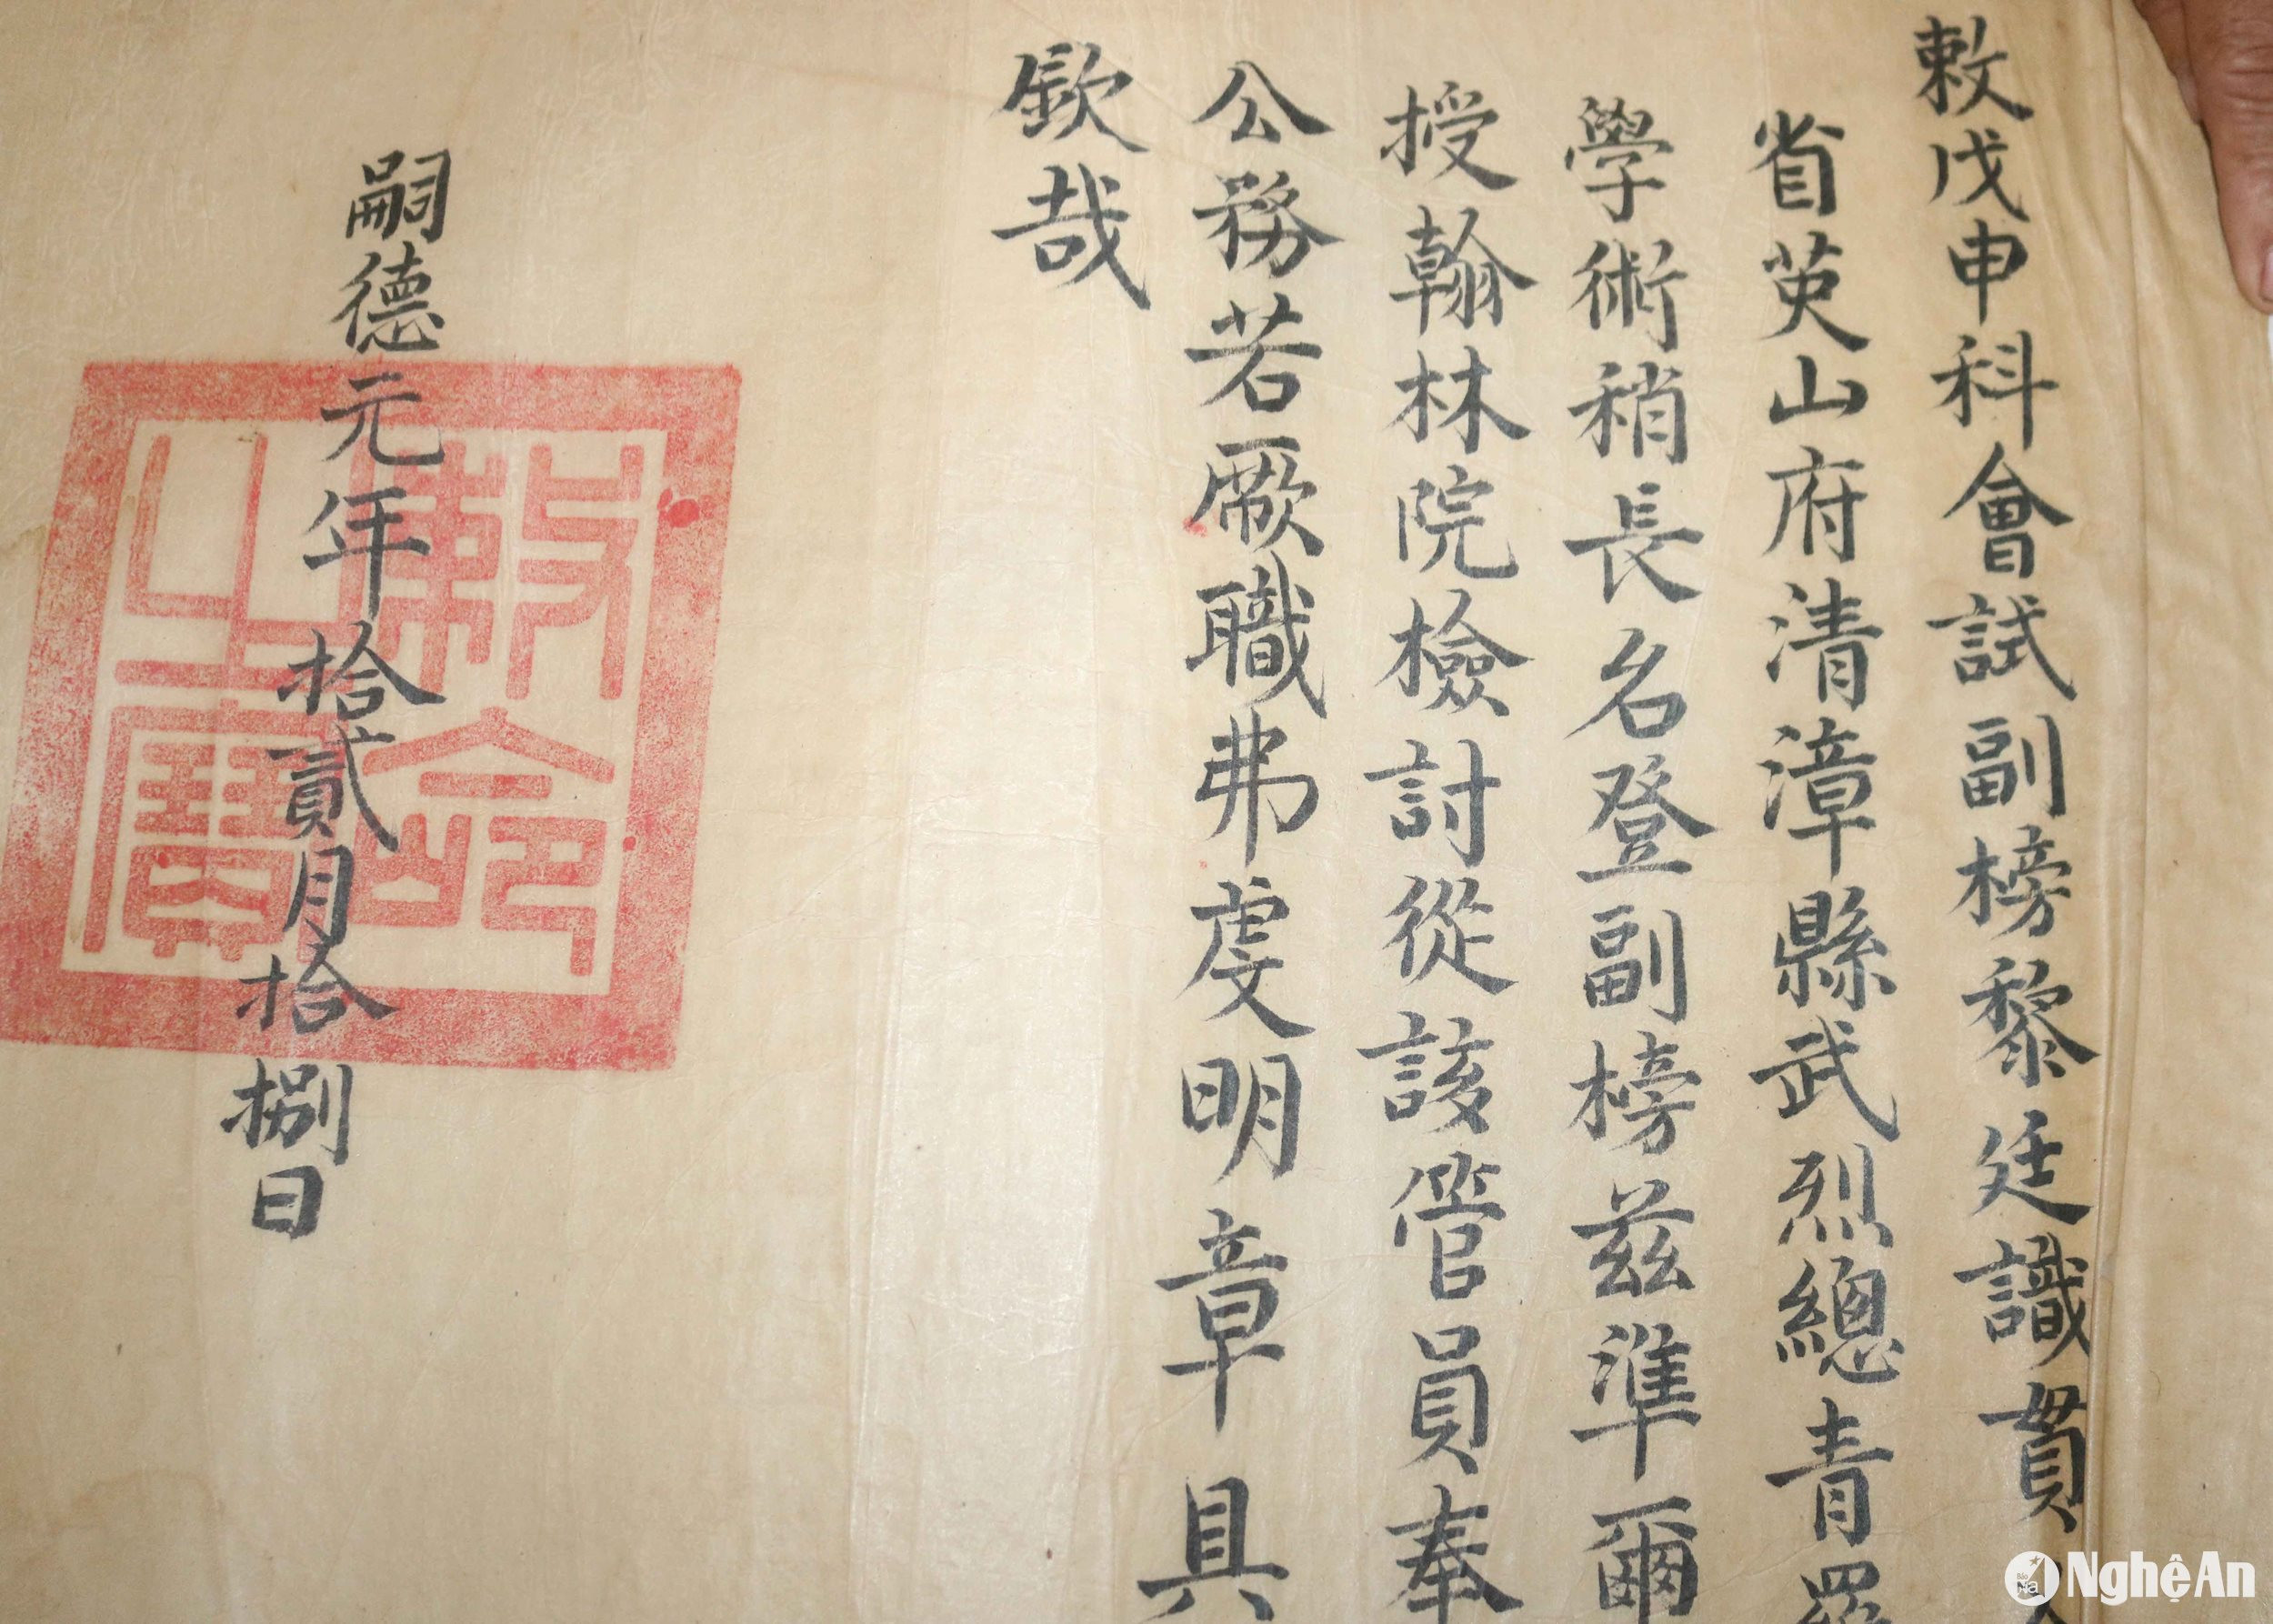 敕戊申科會試副榜黎廷識貫
省英山府清漳縣武烈總青
學術稍長名登副榜茲準爾
授翰林院檢討從該管員奉
公務若厥職弗虔明章具
欽哉
嗣德元年拾貳月拾捌日
敕命之寶
Báo NA NghệAn